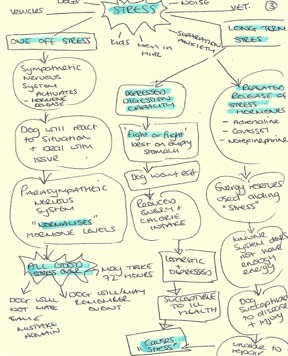 DOGS
NOISE
VEHICLES
STRESS
VET.
3
KIDS
MEN IN
HVR
SEPARATION
ANXIETY
ONE OFF STRESS
LONG TERM
STRESS
Sympathetic
Nervous
System
- ACTIVATES
- HORMONE
RELEASE
Dog will react
to situation
+ deal with
issue
Parasympathetic
Nervous
System
"NORMALISES"
HORMONE LEVELS
ALL GOOD
STRESS OVER
MAY TAKE
72 HOURS
DOG WILL
NOT MAKE
SAME
MISTAKE
AGAIN
DOG WILL/MAY
REMEMBER
EVENT
DEPRESSED
DIGESTION
CAPACITY
"Fight or flight"
best on empty
stomach
Dog won't eat
REDUCED
ENERGY +
CALORIE
INTAKE
LETHARGIC
+
DEPRESSED
SUSCEPTIBLE
TO ILL
HEALTH
CAUSES
"STRESS"
REPEATED
RELEASE OF
STRESS
HORMONES
- Adrenaline
- Cortisol
- Norepinephrine
Energy reserves
used aiding
"stress"
IMMUNE
SYSTEM DOES
NOT HAVE
ENOUGH
ENERGY
Dog
susceptible
to disease
+ injury
UNABLE TO
repair